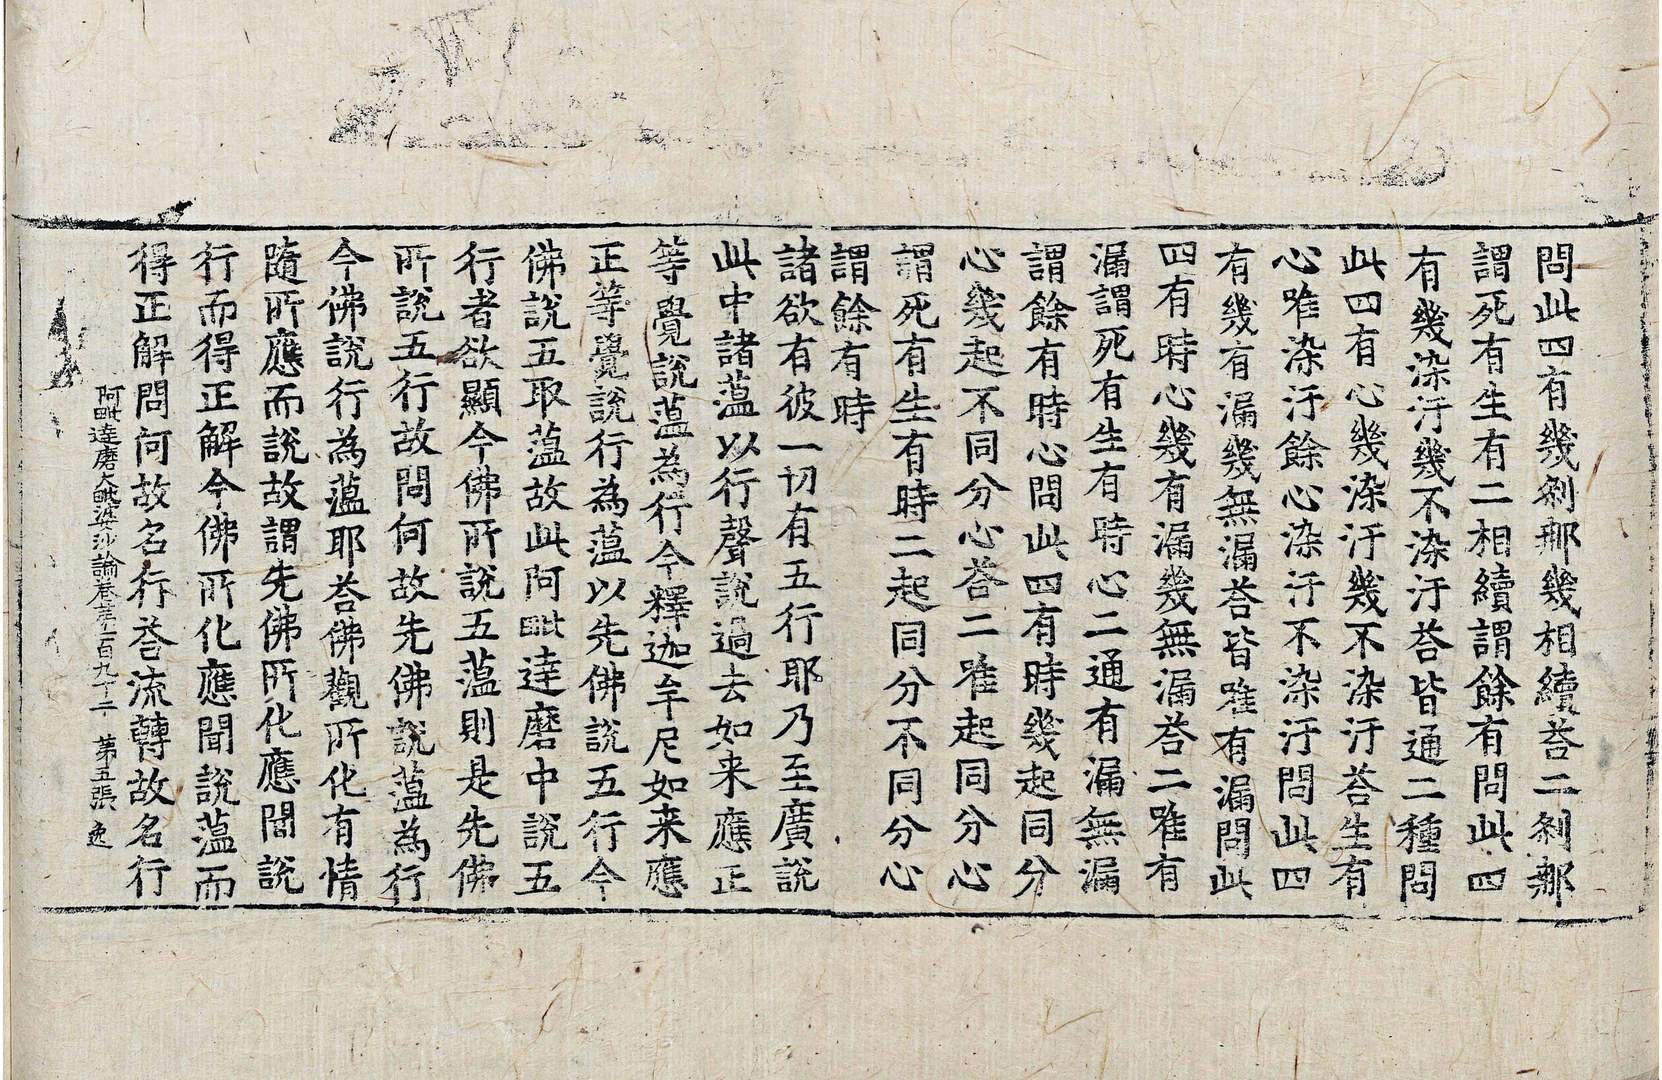 問此四有幾剎那幾相續荅二剎那
謂死有生有二相續謂餘有問此四
有幾染汙幾不染汙荅皆通二種問
此四有心幾染汙幾不染汙荅生有
心唯染汙餘心染汙不染汙問此四
有幾有漏幾無漏荅皆唯有漏問此
四有時心幾有漏幾無漏荅二唯有
漏謂死有生有時心二通有漏無漏
謂餘有時心問此四有時幾起同分
心幾起不同分心荅二唯起同分心
謂死有生有時二起同分不同分心
謂餘有時
諸欲有彼一切有五行耶乃至廣說
此中諸蘊以行聲說過去如来應正
等覺說蘊為行今釋迦牟尼如来應
正等覺說行為蘊以先佛說五行今
佛說五取蘊故此阿毗達磨中說五
行者欲顯今佛所說五蘊則是先佛
所說五行故問何故先佛說蘊為行
今佛說行為蘊耶荅佛觀所化有情
隨所應而說故謂先佛所化應聞說
行而得正解今佛所化應聞說蘊而
得正解問何故名行荅流轉故名行
阿毗達磨大毗婆沙論卷第一百九十二 第五張 逸